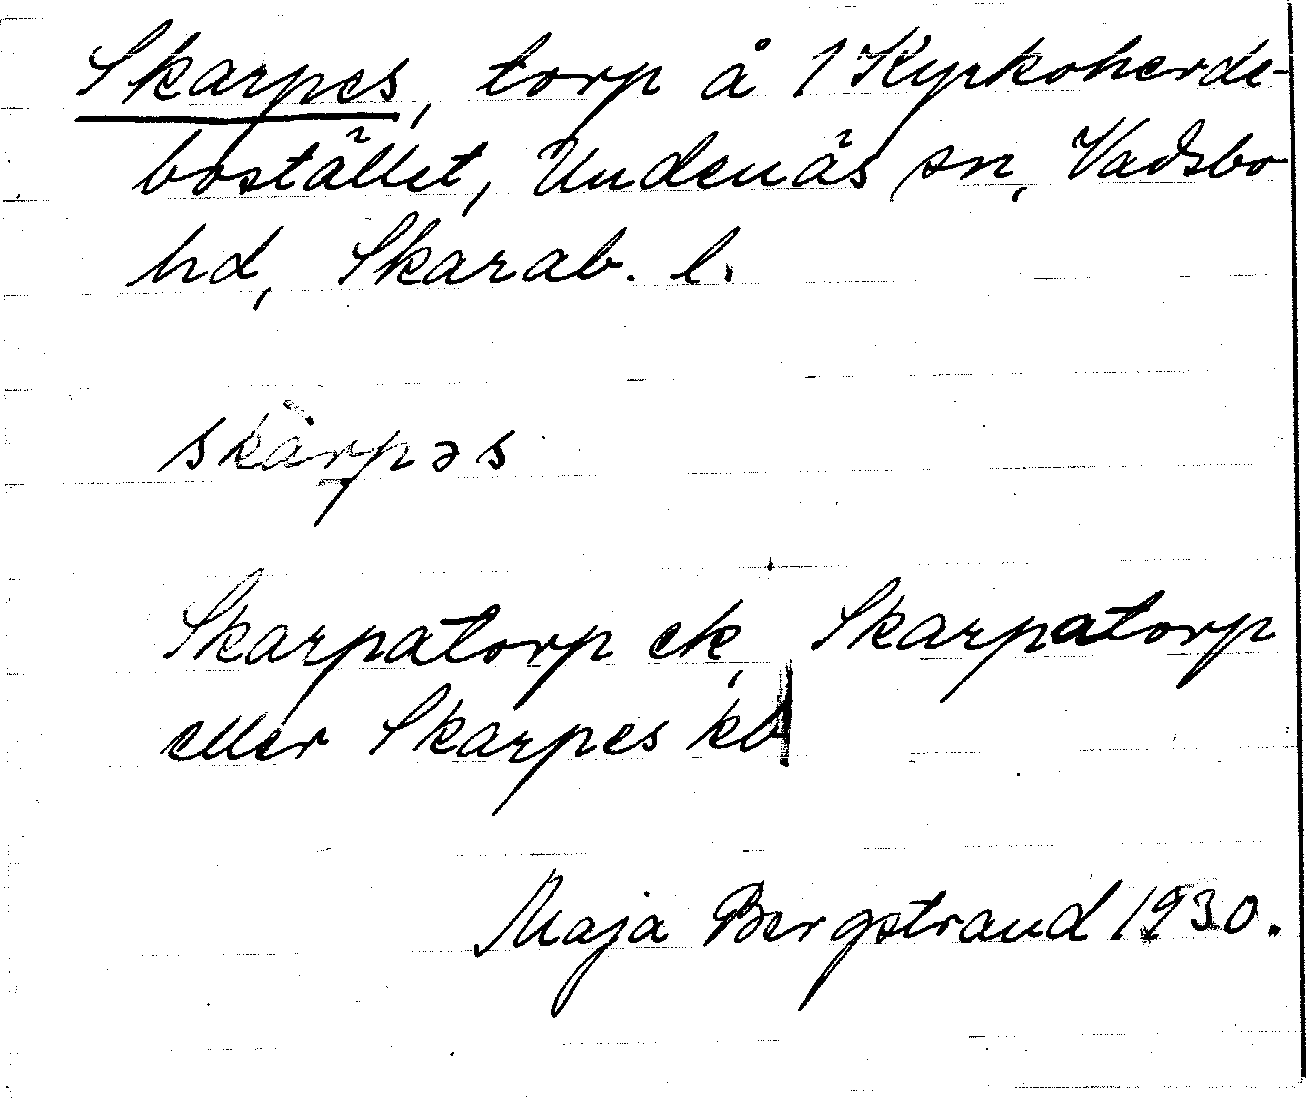 Skarpes, torp å 1 Kyrkoherde-
bostället, Undenäs sn, Vadsbo
hd, Skarab. l.
skàrpəs
Skarpatorp ek, Skarpatorp
eller Skarpes kb
Maja Bergstrand 1930.